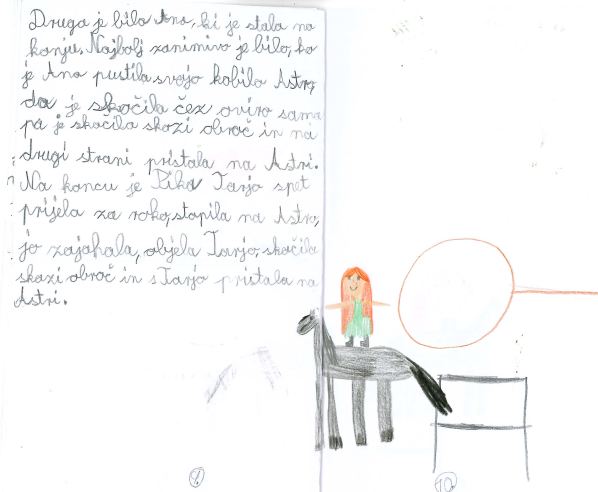 Druga je bila Ana, ki je stala na
konju. Najbolj zanimivo je bilo, ko
je Ana pustila svojo kobilo Astro,
da je skočila čez oviro sama
pa je skočila skozi obroč in na
drugi strani pristala na Astri.
Na koncu je Pika Tanjo spet
prijela za roko, stopila na Astro,
jo zajahala, objela Tanjo, skočila
skozi obroč in s Tanjo pristala na
Astri.
9.
10.